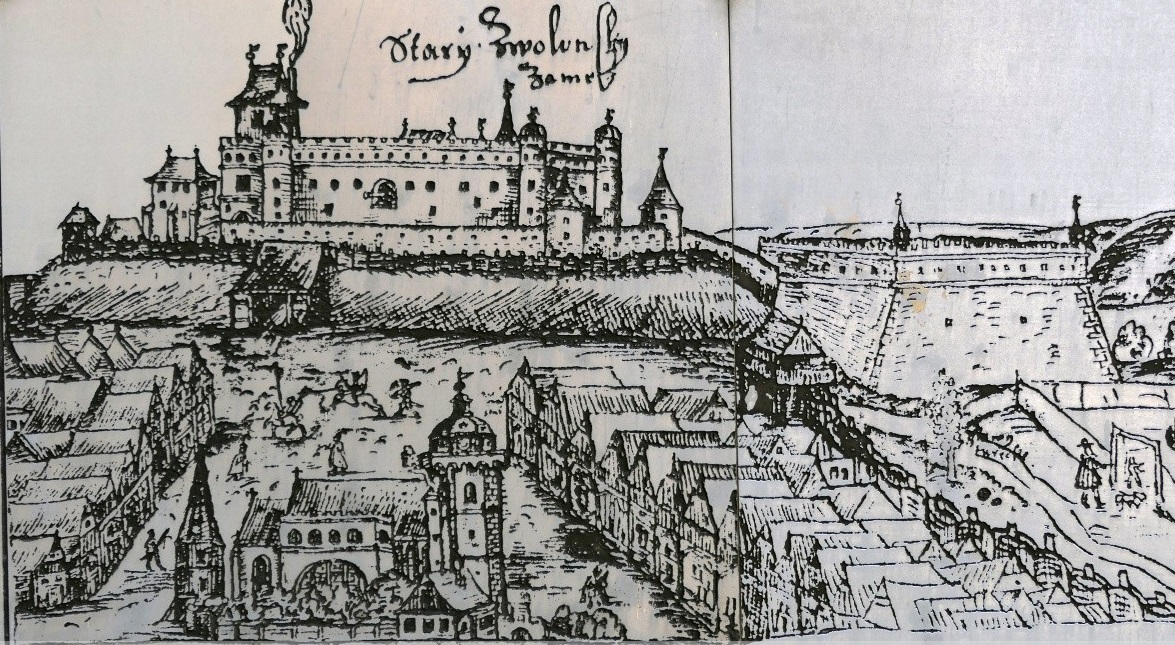 Starý Zwolenſky
Zamek